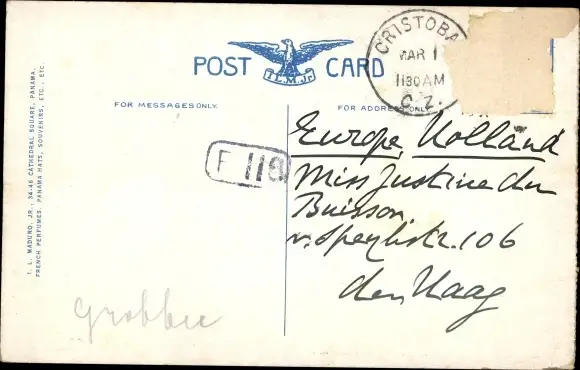 POST CARD
I. L. M. Jr.
CRISTOBA
MAR 1
1130 AM
C. Z.
FOR MESSAGES ONLY.
FOR ADDRESS ONLY
Europe, Holland
Miss Justine du
Buisson
106
den Haag
F 118
I. L. MADURO, JR., 34-46 CATHEDRAL SQUARE, PANAMA.
FRENCH PERFUMES, PANAMA HATS, SOUVENIRS, ETC., ETC.
Grobbee